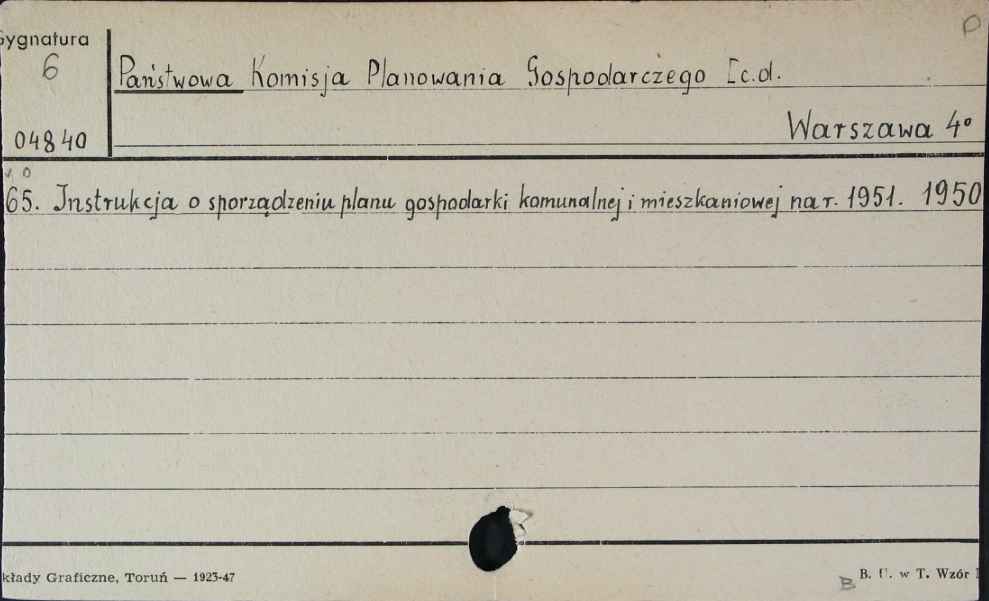 Sygnatura
6
04840
Państwowa Komisja Planowania Gospodarczego [c.d.
Warszawa 4°
65. Instrukcja o sporządzeniu planu gospodarki komunalnej i mieszkaniowej na r. 1951. 1950
kłady Graficzne, Toruń — 1923-47
B
B. U. w T. Wzór